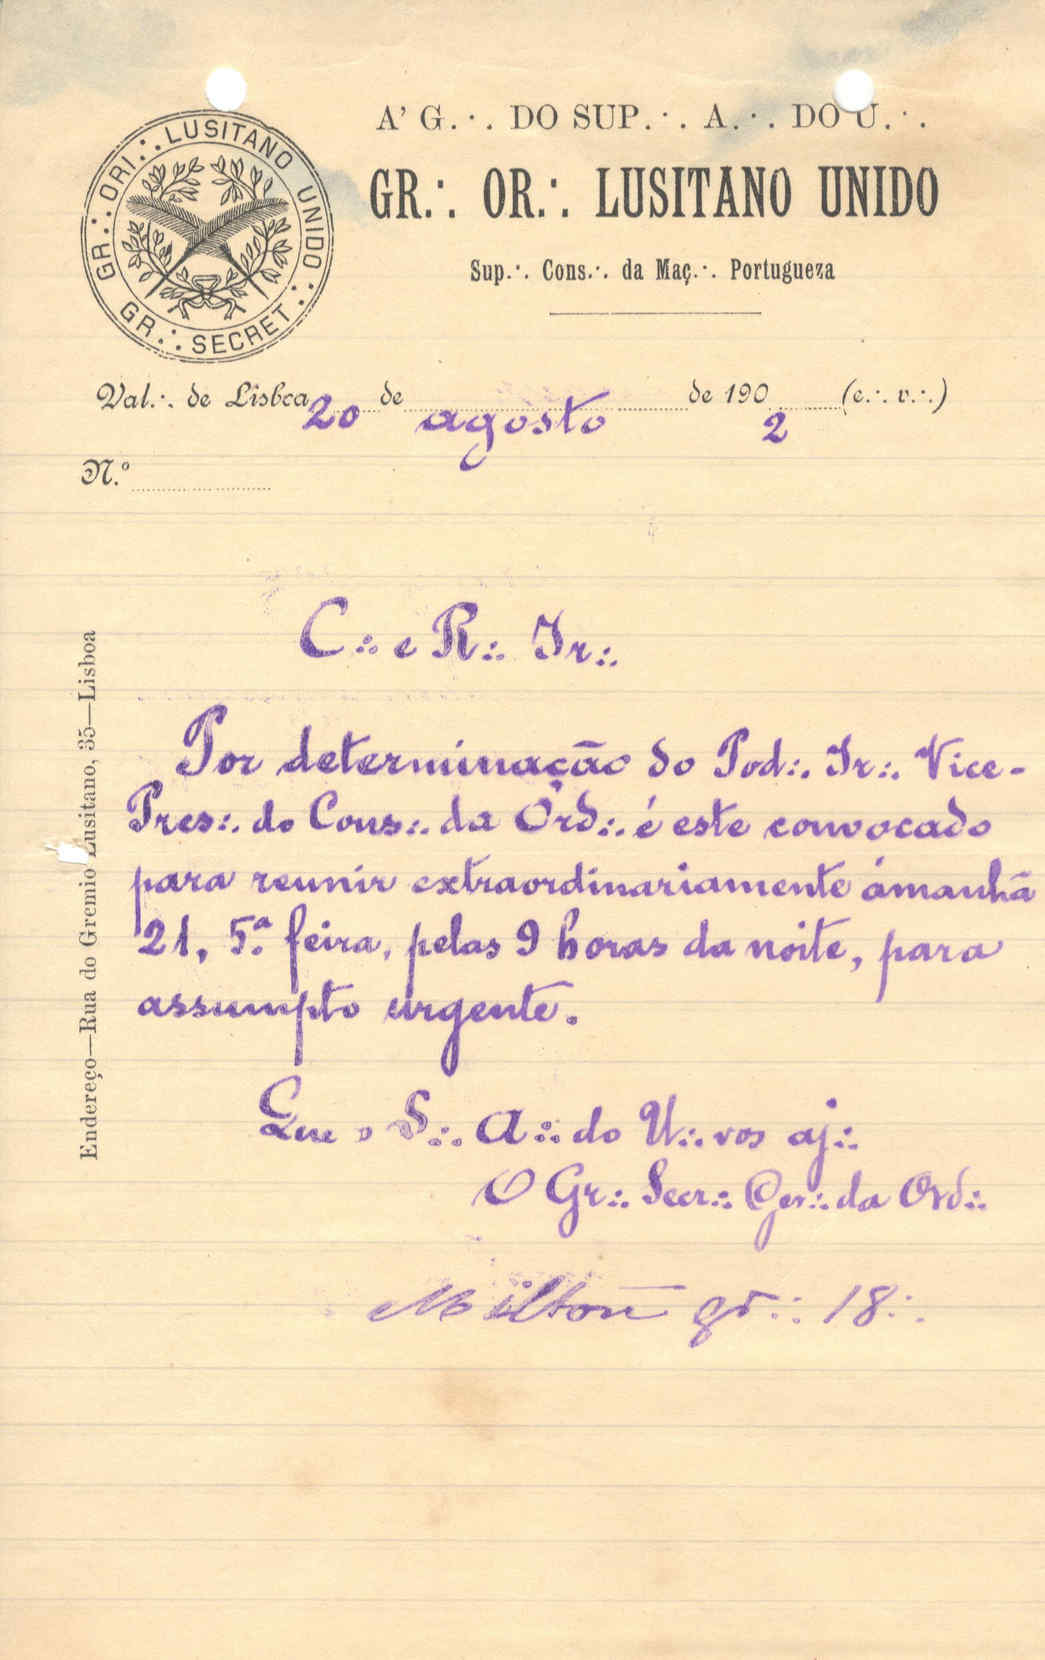 A' G.·. DO SUP.·. A.·. DO U.·.
GR.·. OR.·. LUSITANO UNIDO
Sup.·. Cons.·. da Maç.·. Portugueza
GR.·. ORI.·. LUSITANO UNIDO.·.
GR.·. SECRET.·.
Val.·. de Lisboa 20 de agosto de 1902 (e.·. v.·.)
N.º
Endereço—Rua do Gremio Lusitano, 35—Lisboa
C.·. e R.·. Ir.·.
Por determinação do Pod.·. Ir.·. Vice-
Pres.·. do Cons.·. da Ord.·. é este convocado
para reunir extraordinariamente ámanhã
21, 5.ª feira, pelas 9 horas da noite, para
assumpto urgente.
Que o S.·. A.·. do U.·. vos aj.·.
O Gr.·. Secr.·. Ger.·. da Ord.·.
Milton gr.·. 18.·.